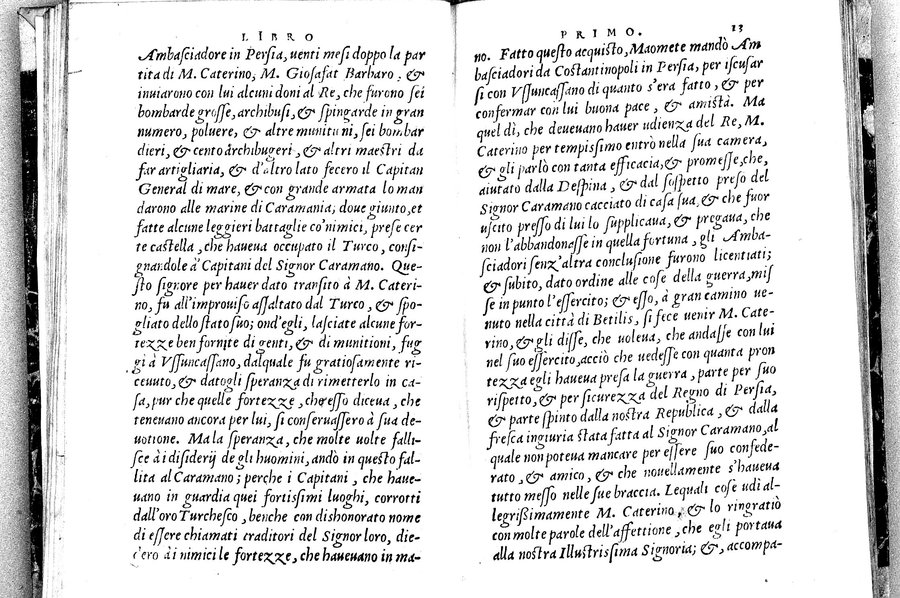 LIBRO
Ambasciadore in Persia, uenti mesi doppo la par
tita di M. Caterino, M. Giosafat Barbaro, &
inuiarono con lui alcuni doni al Re, che furono sei
bombarde grosse, archibusi, & spingarde in gran
numero, poluere, & altre munituni, sei bombar
dieri, & cento archibugeri, & altri maestri da
far artigliaria, & d'altro lato fecero il Capitan
General di mare, & con grande armata lo man
darono alle marine di Caramania; doue giunto, et
fatte alcune leggieri battaglie co'nimici, prese cer
te castella, che haueua occupato il Turco, consi-
gnandole à Capitani del Signor Caramano. Que-
sto signore per hauer dato transito à M. Cateri-
no, fu all'improuiso assaltato dal Turco, & spo-
gliato dello stato suo; ond'egli, lasciate alcune for-
tezze ben fornite di genti, & di munitioni, fug
gì à Vssuncassano, dalquale fu gratiosamente ri-
ceuuto, & datogli speranza di rimetterlo in ca-
sa, pur che quelle fortezze, ch'esso diceua, che
teneuano ancora per lui, si conseruassero à sua de-
uotione. Ma la speranza, che molte uolte falli-
sce à i disiderij de gli huomini, andò in questo fal-
lita al Caramano; perche i Capitani, che haue-
uano in guardia quei fortissimi luoghi, corrotti
dall'oro Turchesco, benche con dishonorato nome
di essere chiamati traditori del Signor loro, die-
dero à i nimici le fortezze, che haueuano in ma-
PRIMO. 13
no. Fatto questo acquisto, Maomete mandò Am
basciadori da Costantinopoli in Persia, per iscusar
si con Vssuncassano di quanto s'era fatto, & per
confermar con lui buona pace, & amistà. Ma
quel dì, che deueuano hauer udienza del Re, M.
Caterino per tempissimo entrò nella sua camera,
& gli parlò con tanta efficacia, & promesse, che,
aiutato dalla Despina, & dal sospetto preso del
Signor Caramano cacciato di casa sua, & che fuor
uscito presso di lui lo supplicaua, & pregaua, che
non l'abbandonasse in quella fortuna, gli Amba-
sciadori senz'altra conclusione furono licentiati;
& subito, dato ordine alle cose della guerra, mis
se in punto l'essercito; & esso, à gran camino ue-
nuto nella città di Betilis, si fece uenir M. Cate-
rino, & gli disse, che uoleua, che andasse con lui
nel suo essercito, acciò che uedesse con quanta pron
tezza egli haueua presa la guerra, parte per suo
rispetto, & per sicurezza del Regno di Persia,
& parte spinto dalla nostra Republica, & dalla
fresca ingiuria stata fatta al Signor Caramano, al
quale non poteua mancare per essere suo confede-
rato, & amico, & che nouellamente s'haueua
tutto messo nelle sue braccia. Lequali cose udì al-
legrissimamente M. Caterino, & lo ringratiò
con molte parole dell'affettione, che egli portaua
alla nostra Illustrissima Signoria; &, accompa-